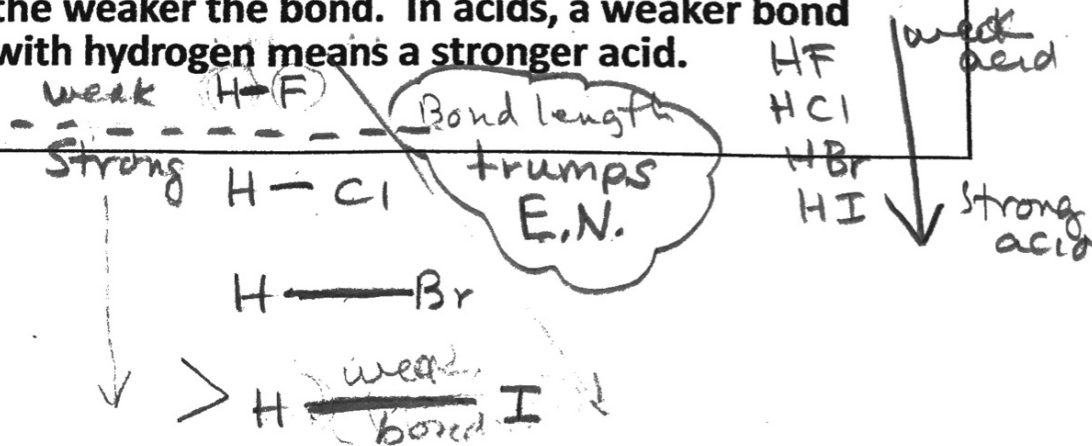 the weaker the bond. In acids, a weaker bond
with hydrogen means a stronger acid.
weak H-F
Strong H-Cl
H-Br
> H-I
weak
bond
Bond length
trumps
E.N.
HF
HCl
HBr
HI
weak
acid
Strong
acid